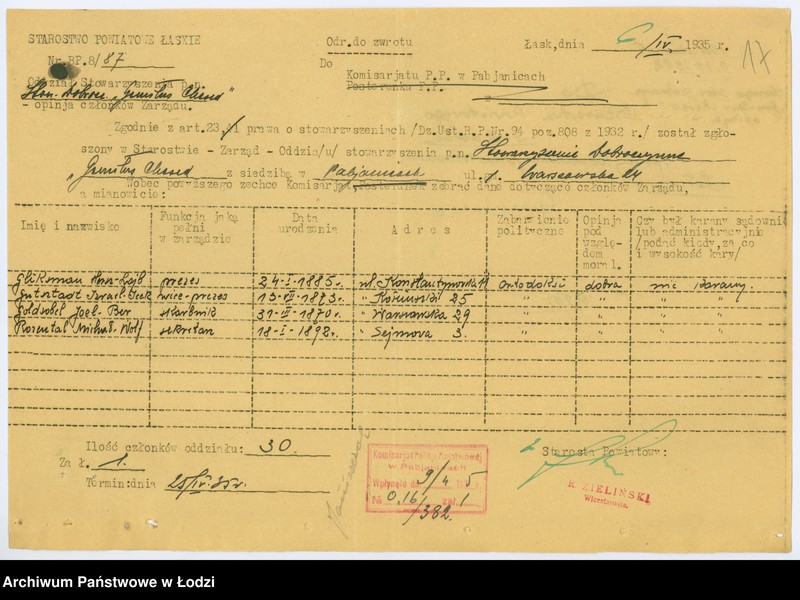 STAROSTWO POWIATOWE ŁASKIE
Odr.do zwrotu
Łask,dnia 6/IV. 1935 r.
17
Nr.BP.8/87
Do
Komisarjatu P.P. w Pabjanicach
Posterunku P.P.
Oddział Stowarzyszenia p.n.
Stow. Dobrocz. "Gmiłus Chesed"
- opinja członków Zarządu.
Zgodnie z art.23, prawa o stowarzyszeniach /Dz.Ust.R.P.Nr.94 poz.808 z 1932 r./ został zgło-
szony w Starostwie - Zarząd - Oddzia/u/ stowarzyszenia p.n. Stowarzyszenie Dobroczynne
"Gmiłus Chesed z siedzibą w Pabjanicach ul. Warszawska
Wobec powyższego zechce Komisarjat Posterunek zebrać dane dotyczące członków Zarządu,
a mianowicie:
Imię i nazwisko | Funkcja jaką pełni w zarządzie | Data urodzenia | Adres | Zabarwienie polityczne | Opinja pod względem moral. | Czy był karany sądownie lub administracyjnie /podać kiedy, za co i wysokość kary/
Gliksman prezes 24-I-1885r. ul. Konstantynowska ortodoksi dobra nie karany.
Gutsztadt Izrael wice-prezes 1873r. " 25 " " " "
Goldsobel Joel-Ber skarbnik 1870r. " Warszawska 29 " " " "
Rozental Michał-Wolf sekretarz 18-I-1898r. " Sejmowa 3. " " " "
Ilość członków oddziału: 30.
Za ł. 1.
Termin:dnia 25/IV.35r.
Komisarjat Policji Państwowej
w Pabjanicach
Wpłynęło dn. 9/4 1935 r.
№ 0.16/ zał. 1
/382.
Starosta Powiatowy:
R. ZIELIŃSKI
Wicestarosta.
Archiwum Państwowe w Łodzi